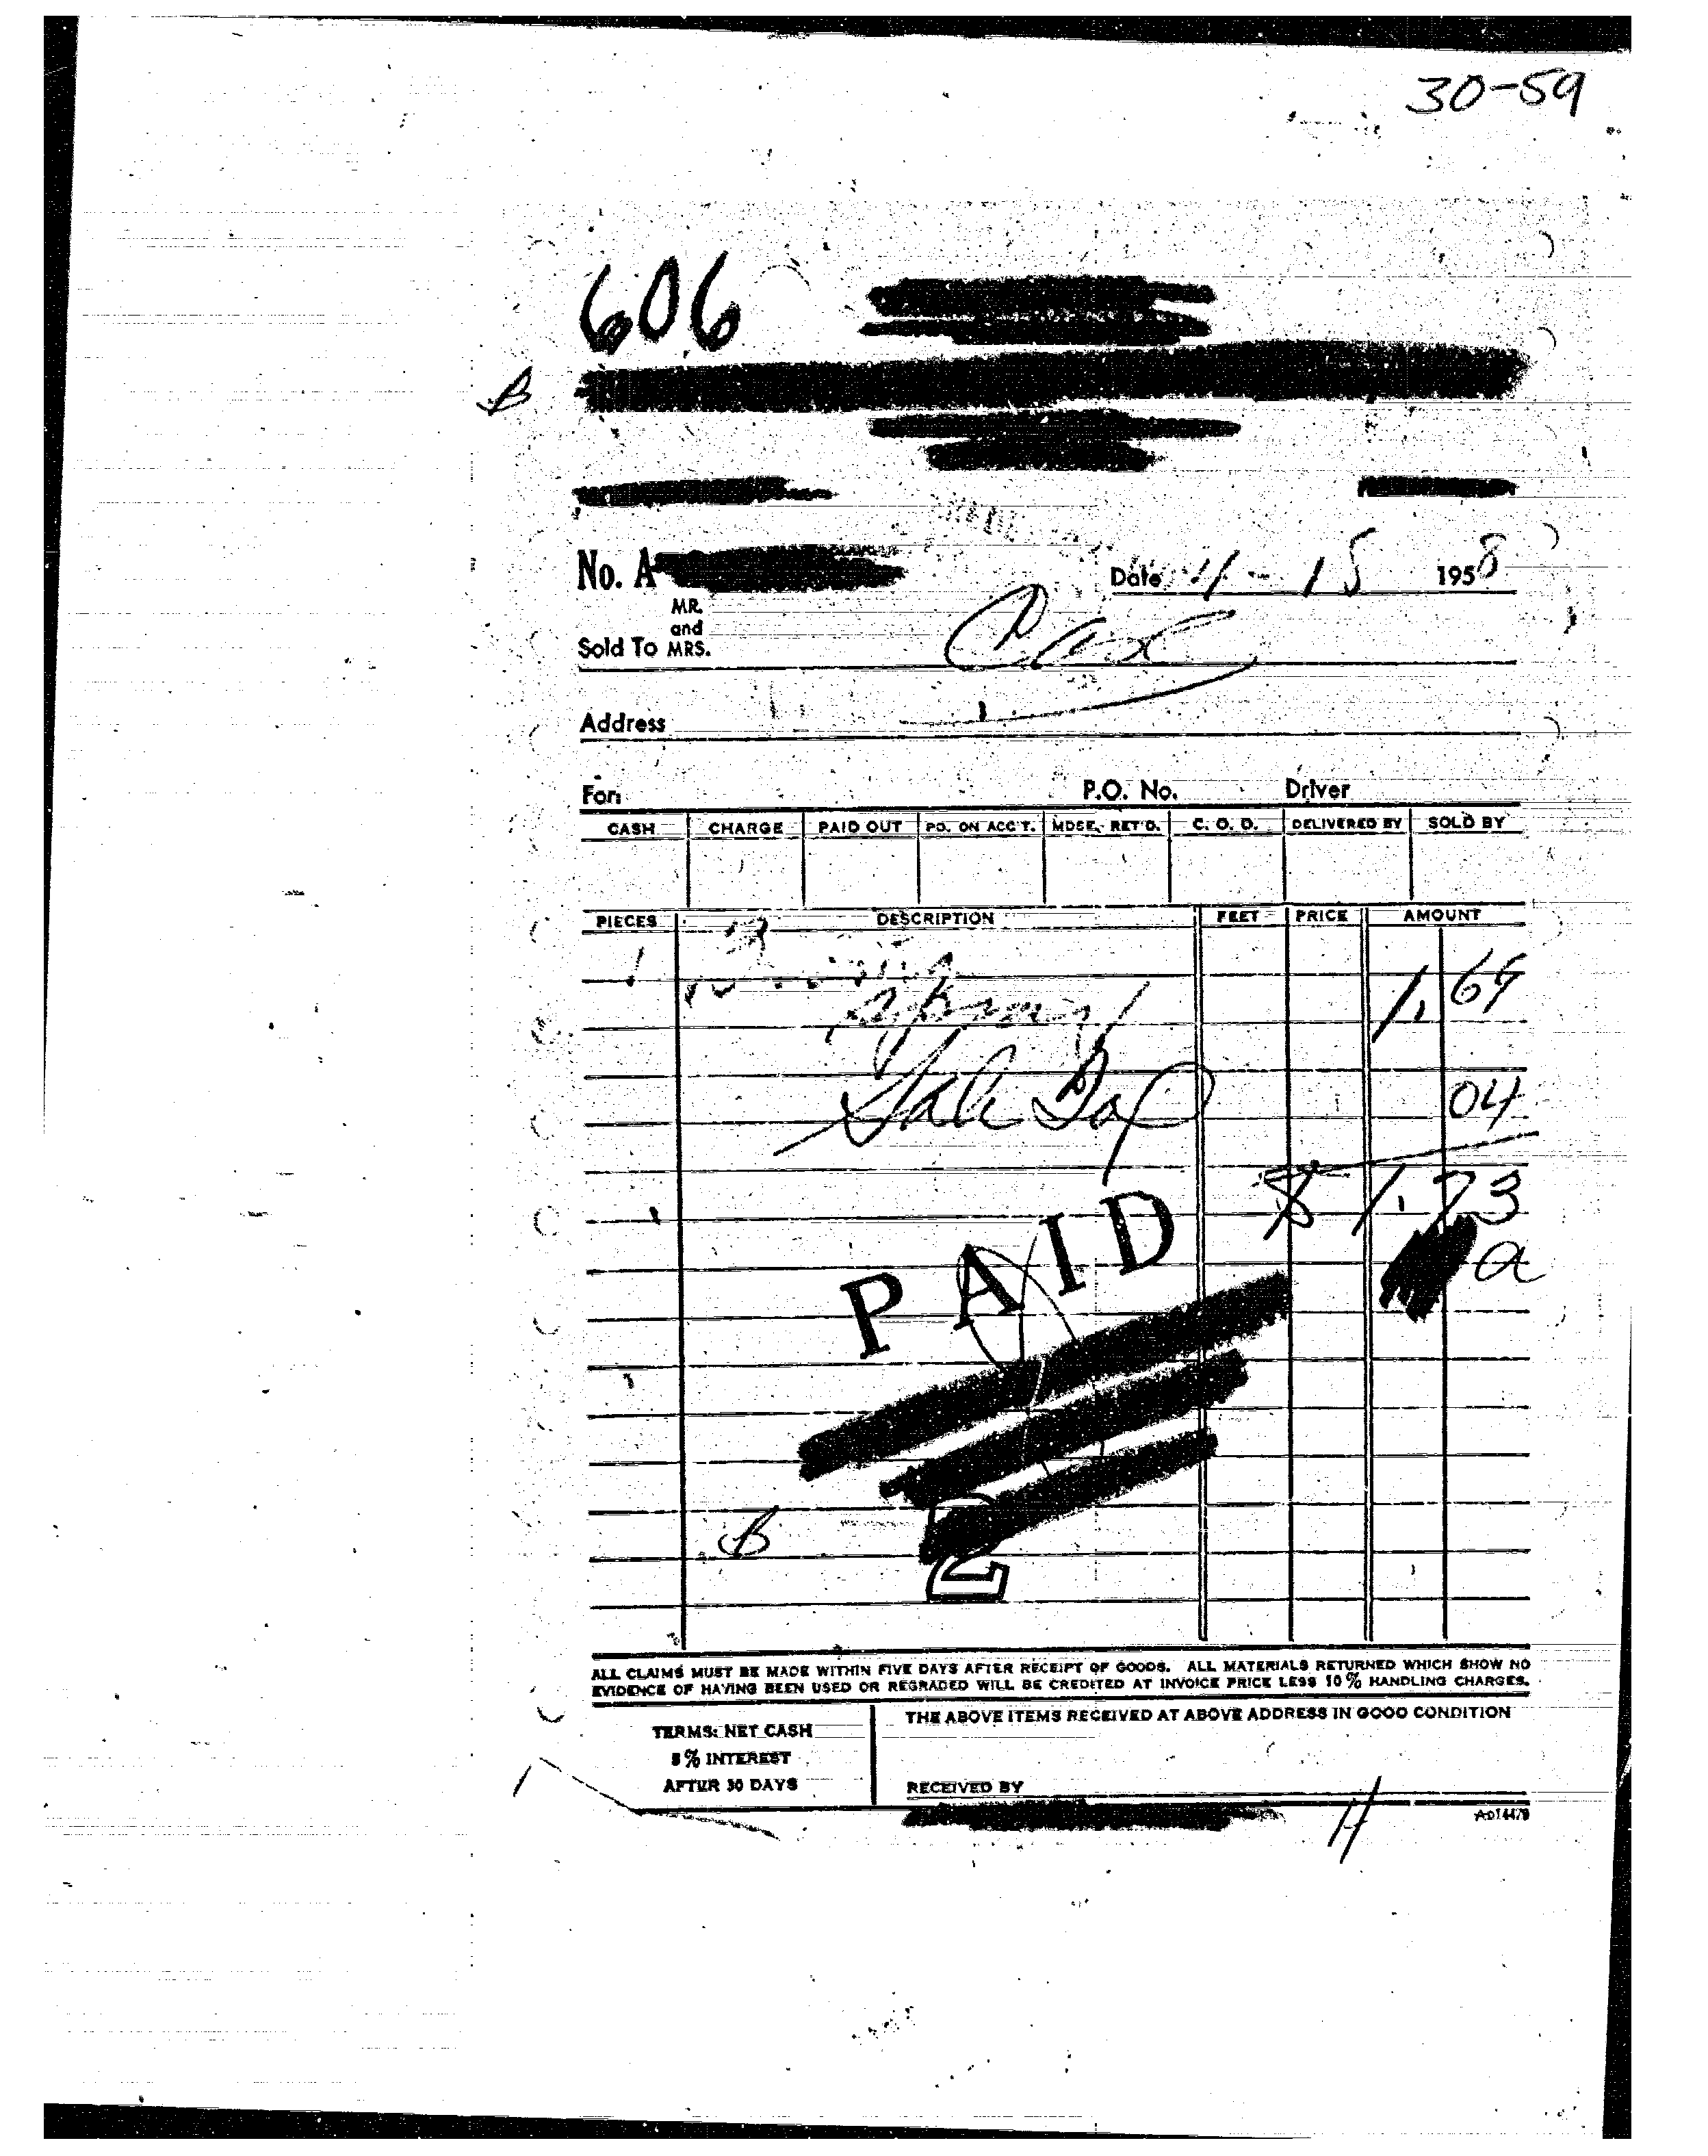 30-59
606
B
No. A
Date 11-15 1958
MR.
and
Sold To MRS.
Address
For P.O. No. Driver
CASH CHARGE PAID OUT PD. ON ACC'T. MDSE. RET'D. C. O. D. DELIVERED BY SOLD BY
PIECES DESCRIPTION FEET PRICE AMOUNT
1
1.69
Sale Tax 04
$ 1.73
a
PAID
B 2
ALL CLAIMS MUST BE MADE WITHIN FIVE DAYS AFTER RECEIPT OF GOODS. ALL MATERIALS RETURNED WHICH SHOW NO
EVIDENCE OF HAVING BEEN USED OR REGRADED WILL BE CREDITED AT INVOICE PRICE LESS 10% HANDLING CHARGES.
TERMS: NET CASH
8% INTEREST
AFTER 30 DAYS
THE ABOVE ITEMS RECEIVED AT ABOVE ADDRESS IN GOOD CONDITION
RECEIVED BY